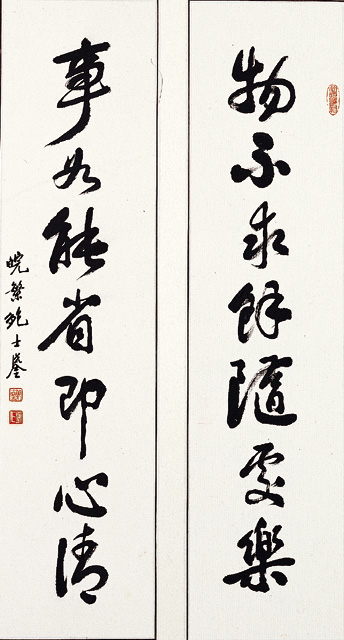 物不求餘隨處樂
事如能省即心清
皖繁鮑士鏊